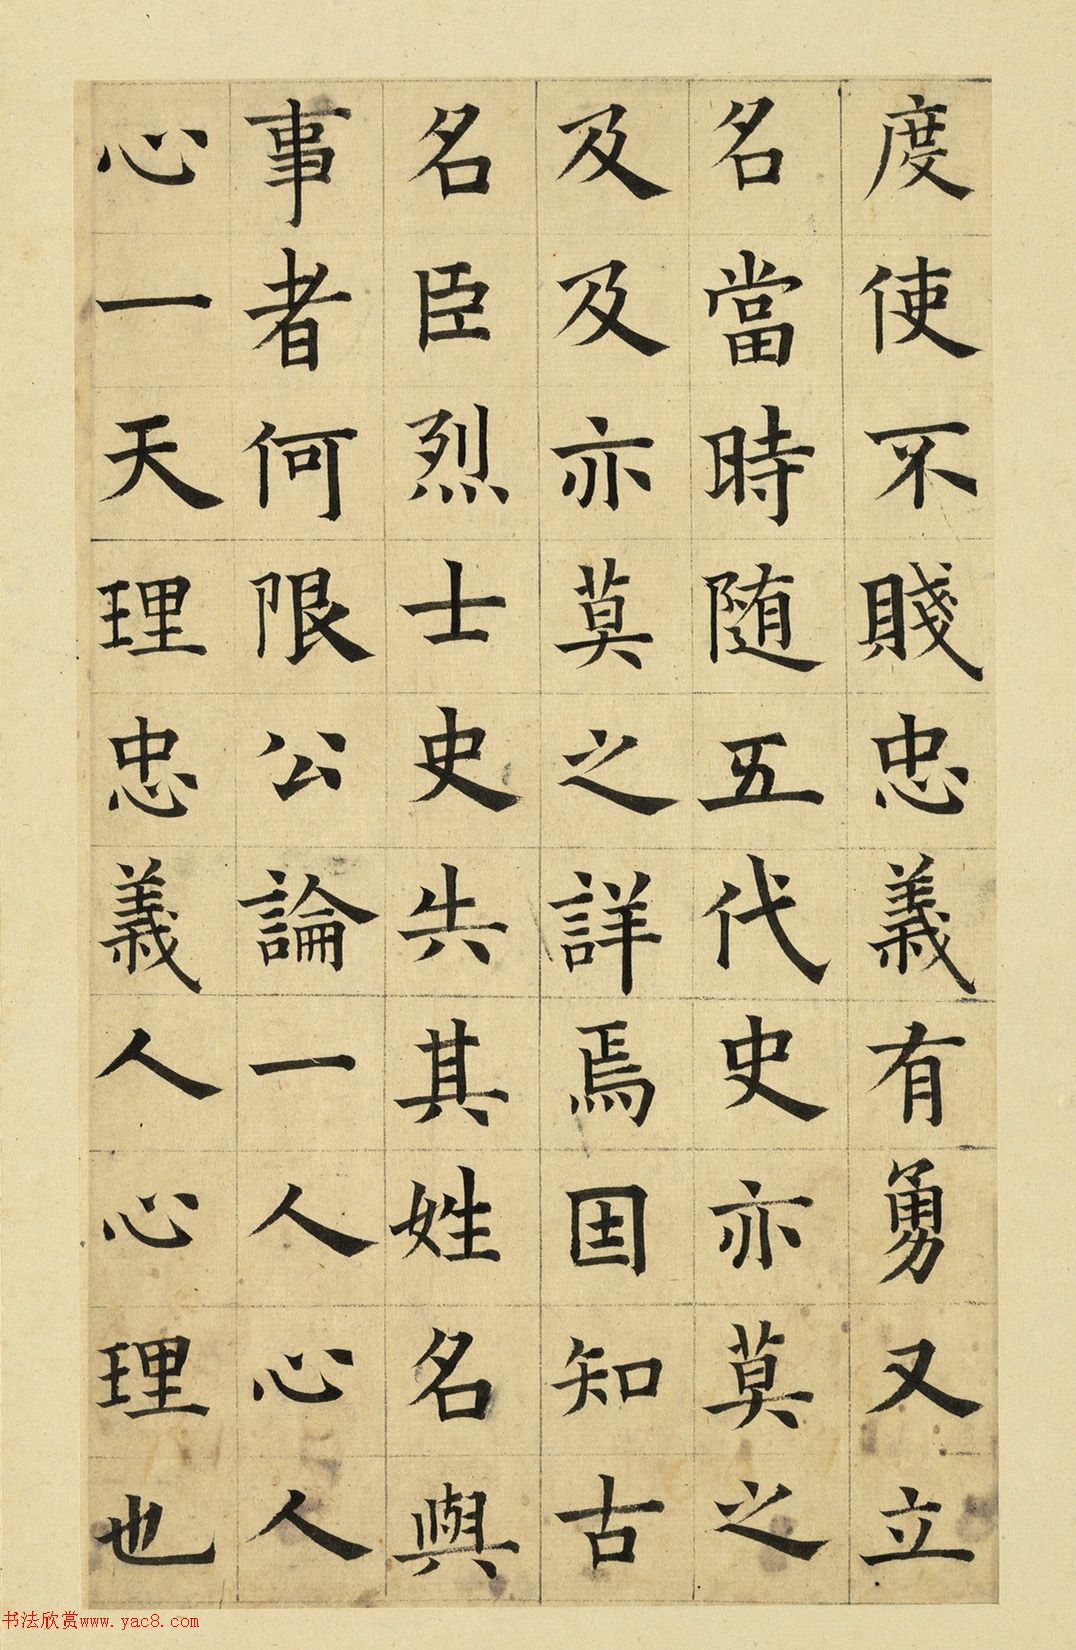 度使不賤忠義有勇又立
名當時随五代史亦莫之
及及亦莫之詳焉因知古
名臣烈士史失其姓名與
事者何限公論一人心人
心一天理忠義人心理也
书法欣赏www.yac8.com